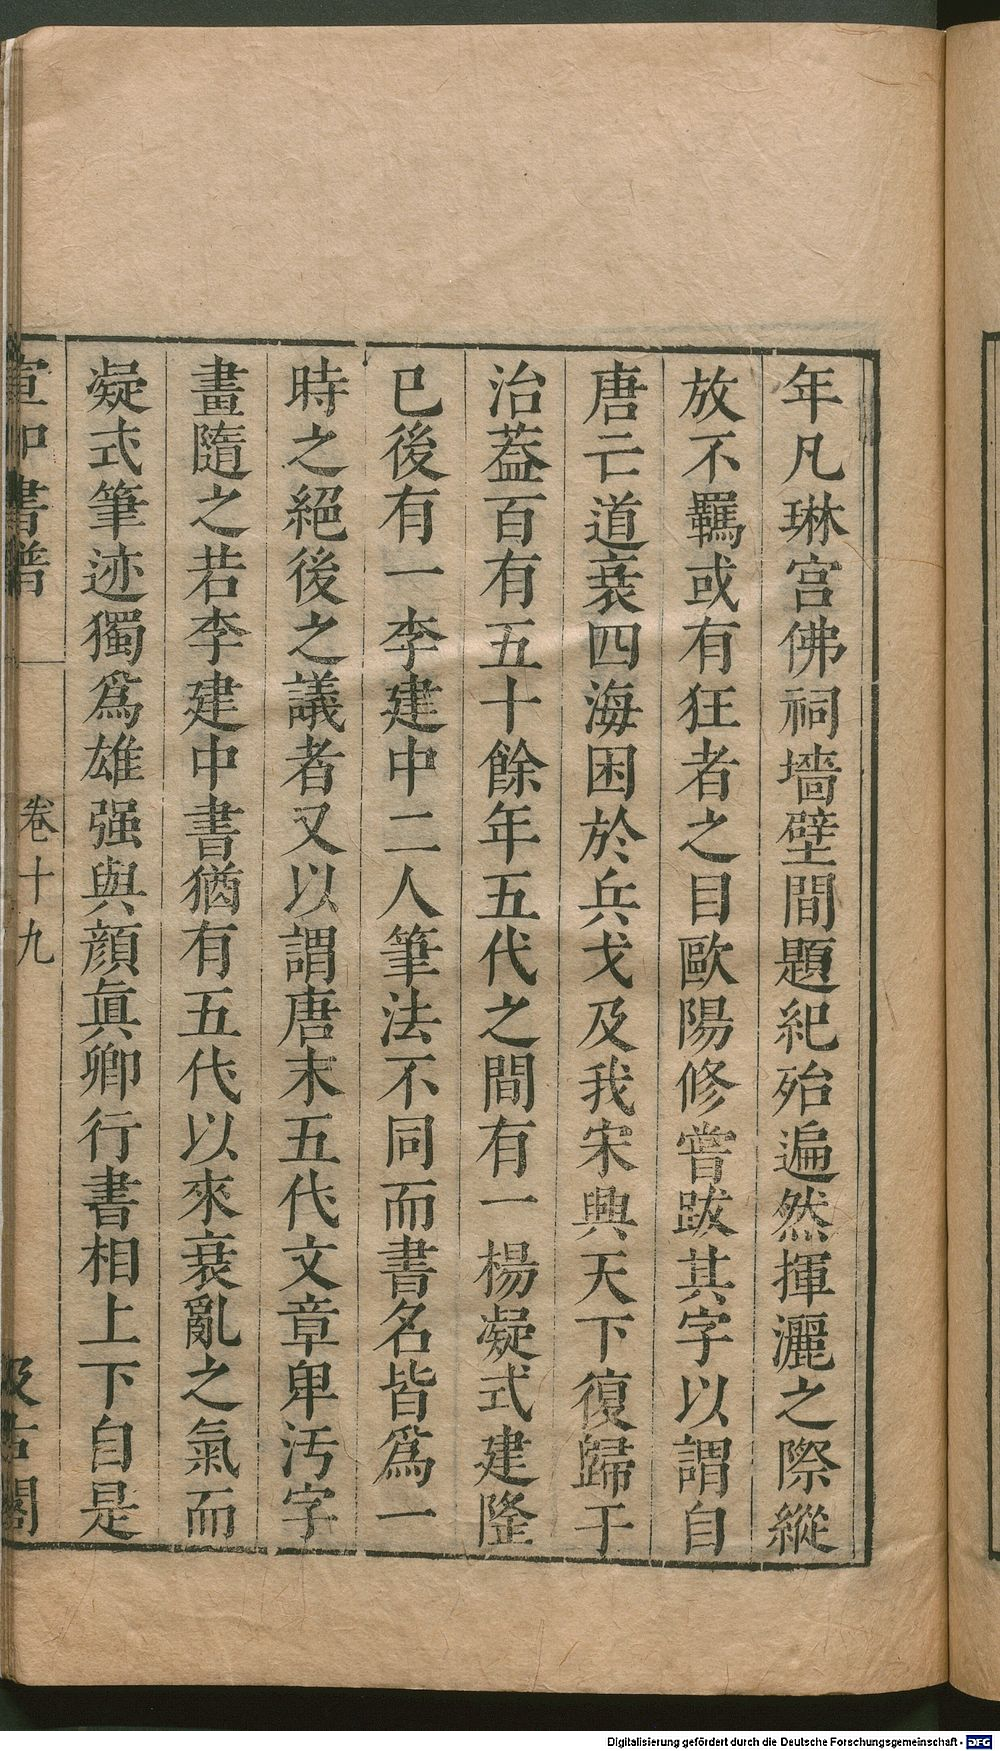 年凡琳宮佛祠墻壁間題紀殆遍然揮灑之際縱
放不羈或有狂者之目歐陽修嘗跋其字以謂自
唐亡道衰四海困於兵戈及我宋興天下復歸于
治蓋百有五十餘年五代之間有一楊凝式建隆
已後有一李建中二人筆法不同而書名皆爲一
時之絕後之議者又以謂唐末五代文章卑汚字
畫隨之若李建中書猶有五代以來衰亂之氣而
凝式筆迹獨爲雄强與顏眞卿行書相上下自是
宣和書譜 卷十九 汲古閣
Digitalisierung gefördert durch die Deutsche Forschungsgemeinschaft - DFG